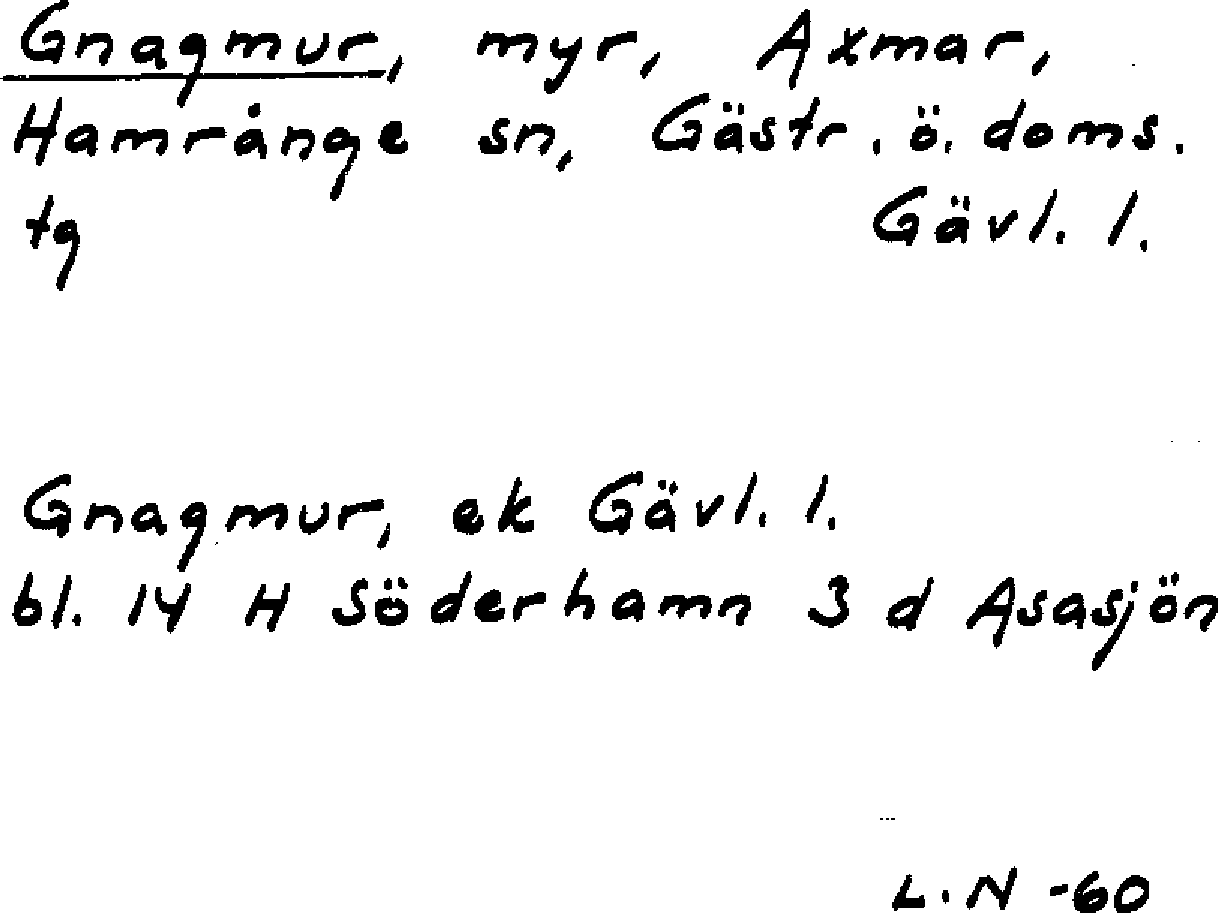 Gnagmur, myr, Axmar,
Hamrånge sn, Gästr. ö. doms.
tg Gävl. l.
Gnagmur, ek Gävl. l.
bl. 14 H Söderhamn 3 d Asasjön
L.N -60